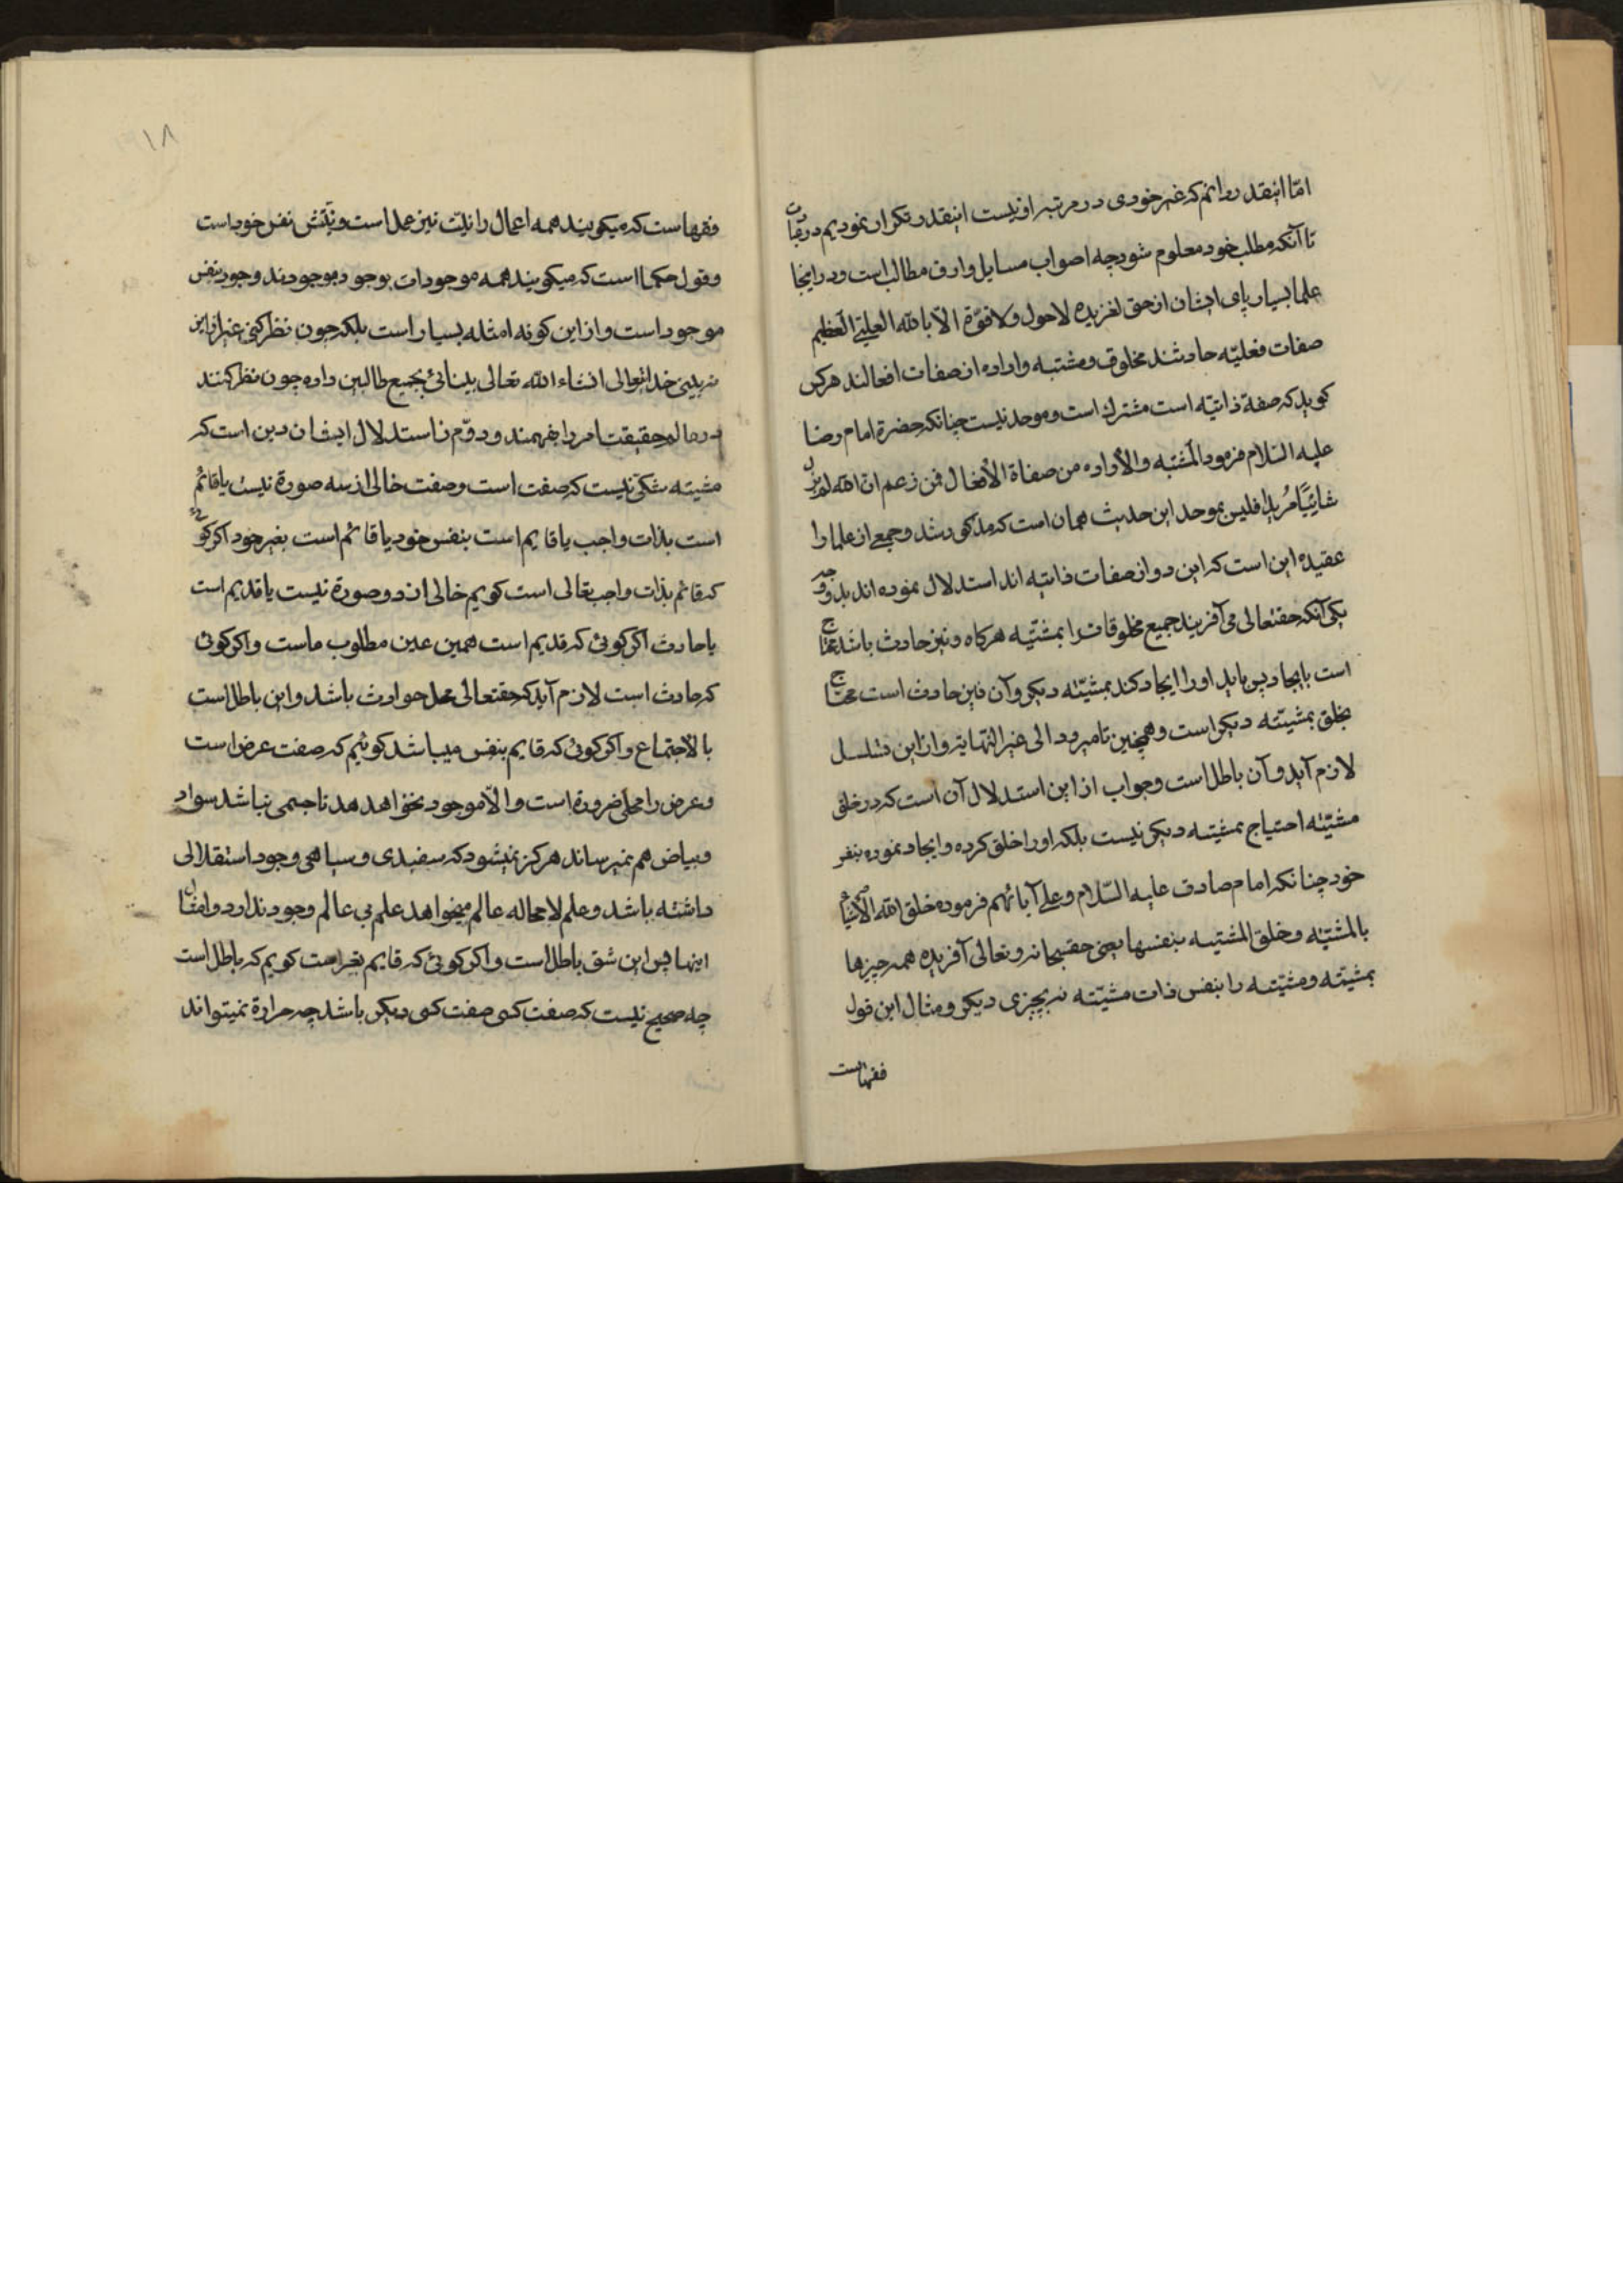 امّا اینقدر دانم که غیر خودی در مرتبه او نیست اینقدر تکرار نمودیم در بیان
تا آنکه مطلب خود معلوم شود چه اصواب مسایل وادق مطالب است ودر اینجا
علما بسیار پای ایشان از حق لغزیده لاحول ولا قوّة الّا بالله العلیّ العظیم
صفات فعلیّه حادثند مخلوق ومشتیه واراده از صفات افعالند هرکس
کوید که صفة ذاتیّه است مشرك است وموحد نیست چنانکه حضرة امام رضا
علیه السّلام فرمود المشیّه والأراده من صفاة الأفعال فمن زعم انّ الله لم یزل
شائیًا مُریدًا فلیس بموحد این حدیث همان است که مذکور شد وجمعی از علما را
عقیده این است که این دو از صفات ذاتیّه اند استدلال نموده اند بدو وجه
یکی آنکه حقتعالی می آفریند جمیع مخلوقات را بمشیّته هرکاه ونیز حادث باشد محتاج
است بایجاد پس باید او را ایجاد کند بمشیّته دیکر وآن نیز حادث است محتاج
بخلق بمشیّته دیکر است وهمچنین تا میرود الی غیر النّهایة واز این تسلسل
لازم آید وآن باطل است وجواب از این استدلال آن است که در خلق
مشیّته احتیاج بمشیّته دیکر نیست بلکه او را خلق کرده وایجاد نموده بنفس
خود چنانکه امام صادق علیه السّلام وعلی آبائهم فرموده خلق الله الأشیاء
بالمشیّته وخلق المشیّته بنفسها یعنی حق سبحانه وتعالی آفریده همه چیزها
بمشیّته ومشیّته را بنفس ذات مشیّته نه بچیزی دیکر ومثال این قول
فقهاست
۱۸
فقهاست که میکویند همه اعمال را نیّت نیز عمل است ونیّتش نفس خود است
وقول حکما است که میکویند همه موجودات بوجود موجودند وجود بنفس
موجود است واز این کونه امثله بسیار است بلکه چون نظر کنی غیر از این
نه بینی خدایتعالی انشاء الله تعالی بینائی بجمیع طالبین داده چون نظر کنند
حقیقت امر را بفهمند ودوّم از استدلال ایشان دین است که
مشیته شکی نیست که صفت است وصفت خالی از سه صورة نیست یا قائم
است بذات واجب یا قایم است بنفس خود یا قائم است بغیر خود اکر کوئی
که قائم بذات واجب تعالی است کویم خالی از دو صورة نیست یا قدیم است
یا حادث اکر کوئی که قدیم است همین عین مطلوب ماست واکر کوئی
که حادث است لازم آید که حقتعالی محل حوادث باشد واین باطل است
بالاجتماع واکر کوئی که قایم بنفس میباشد کوئیم که صفت عرض است
وعرض را محلّی ضرورة است والّا موجود نخواهد شد تا جسمی نباشد سواد
وبیاض هم نمیرساند هرکز نمیشود که سفیدی وسیاهی وجود استقلالی
داشته باشد وعلم لا محاله عالم میخواهد علم بی عالم وجود ندارد وامثال
اینها پس این شق باطل است واکر کوئی که قایم بغیر است کویم که باطل است
چه صحیح نیست که صفت کسی صفت کسی دیکر باشد چه حرارة نمیتواند